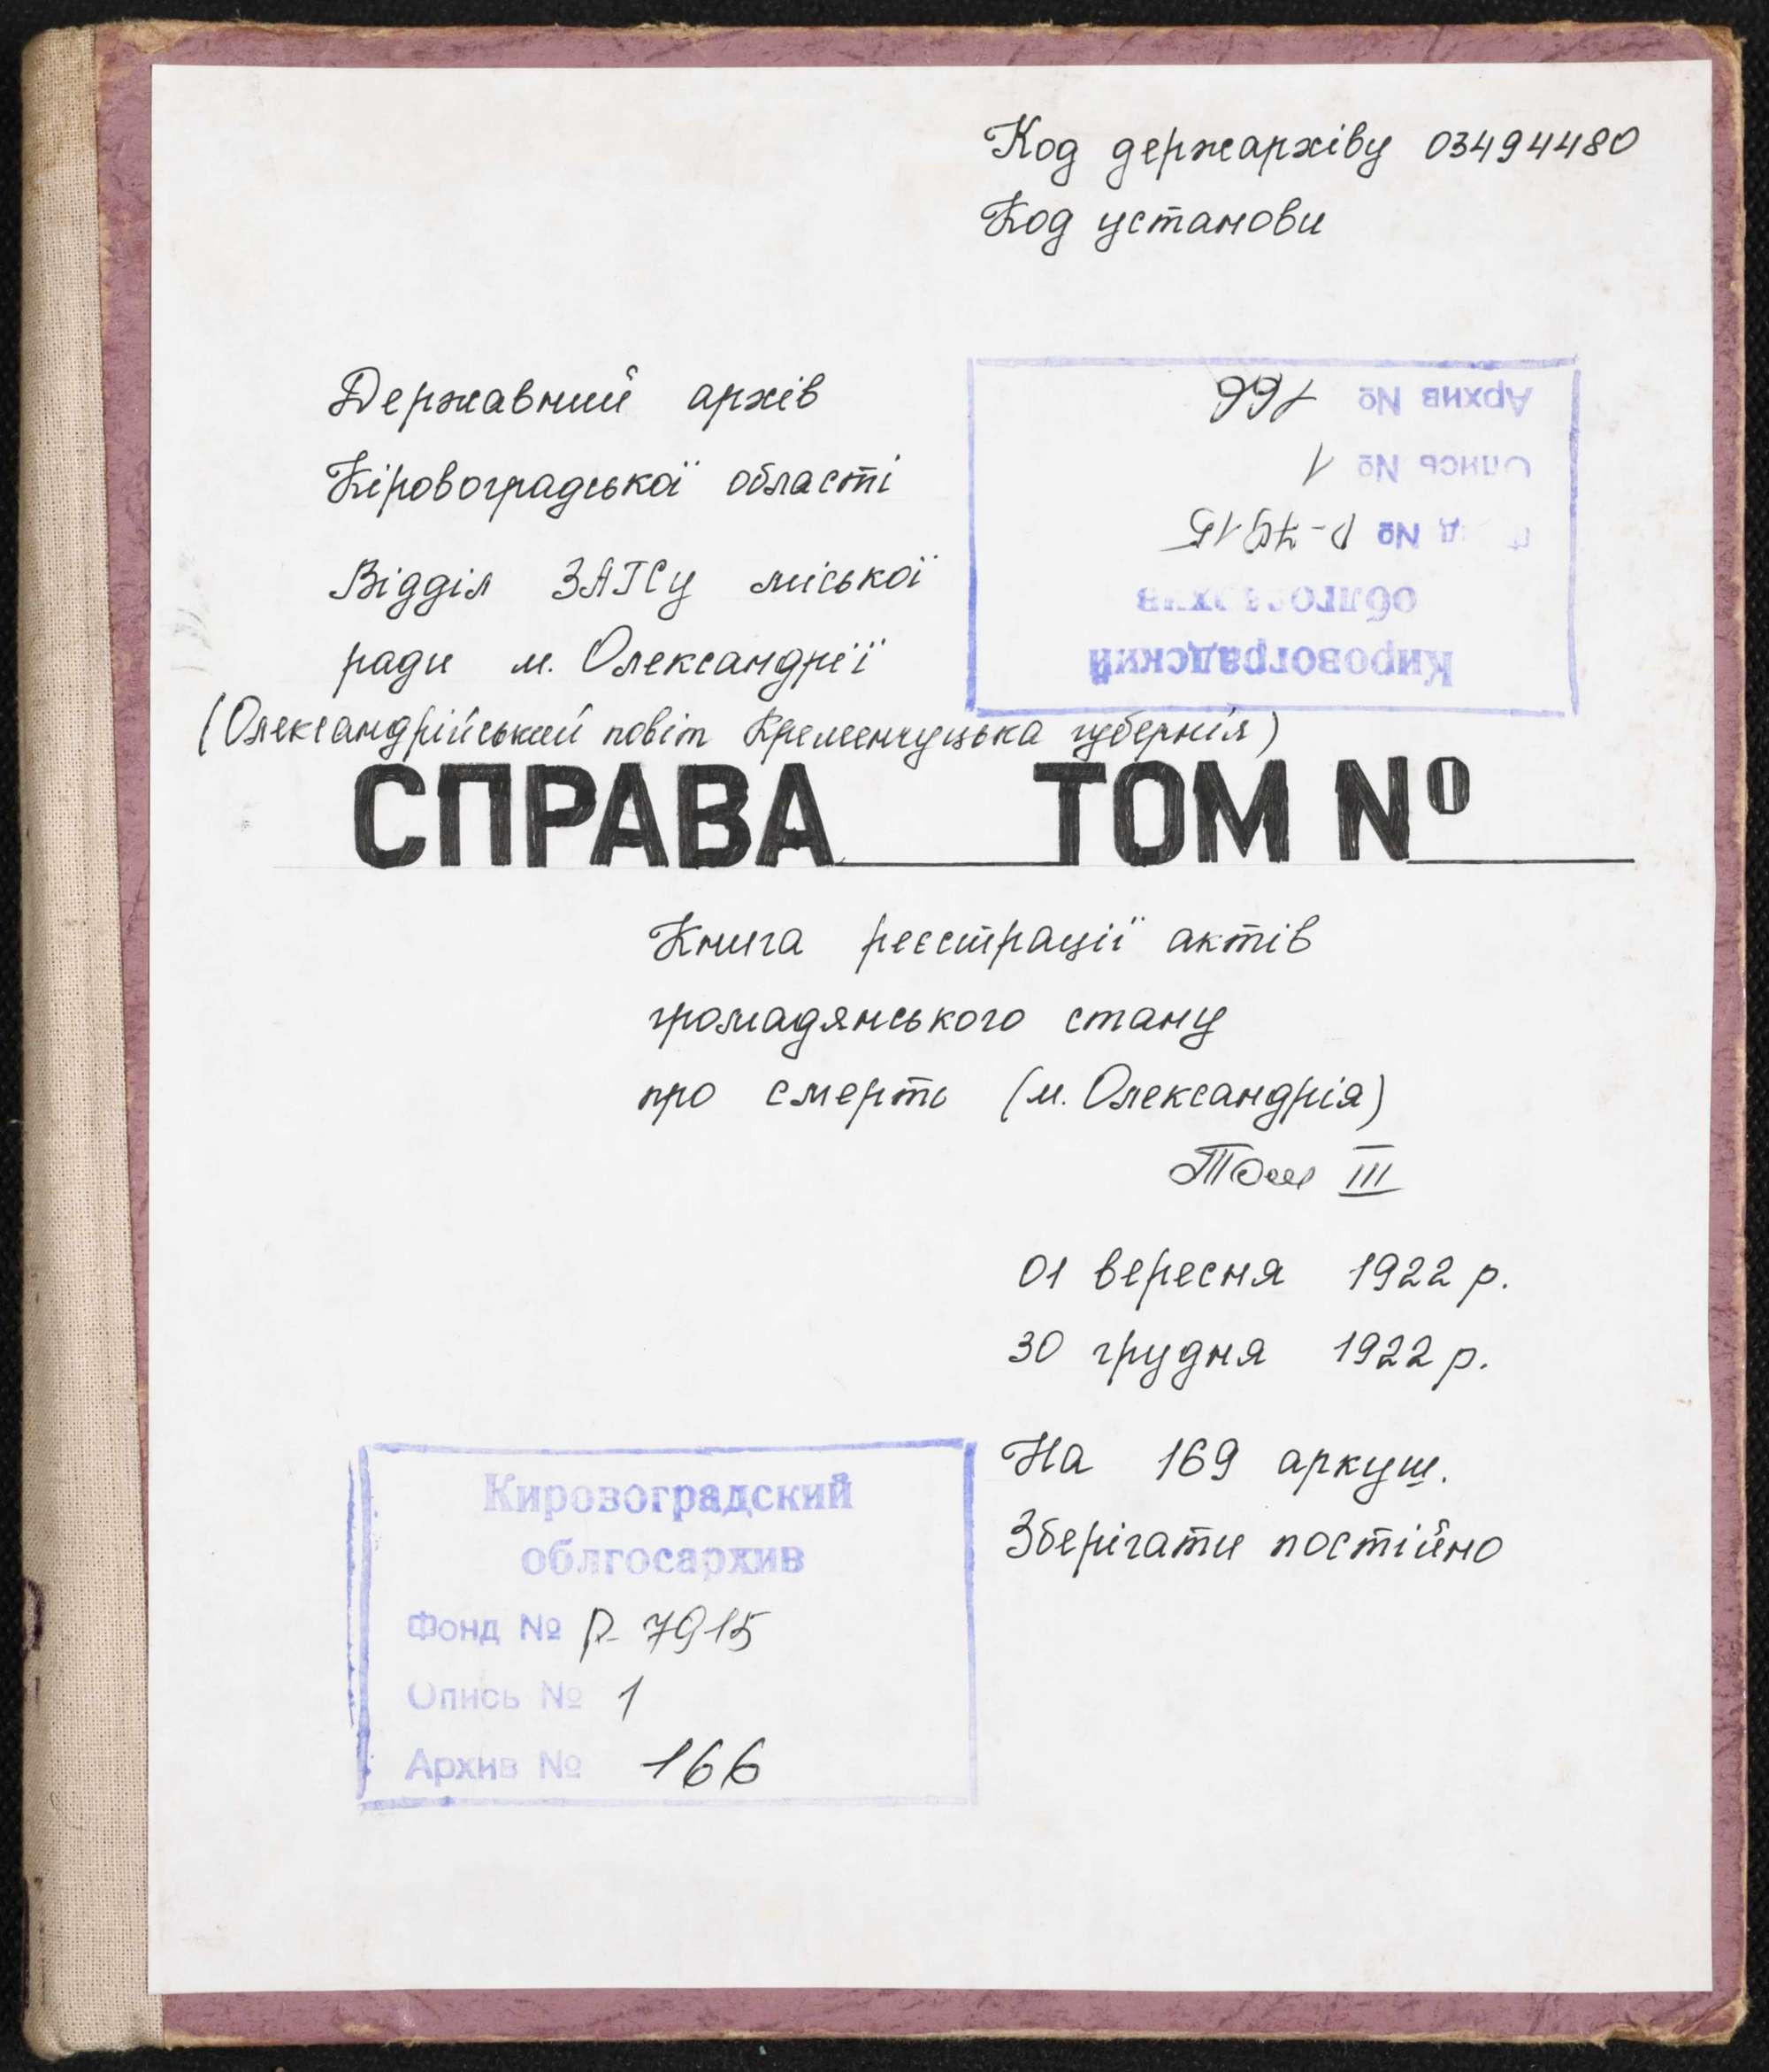 Код держархіву 03494480
Код установи
Державний архів
Кіровоградської області
Відділ ЗАГСу міської
ради м. Олександрії
(Олександрійський повіт Кременчуцька губернія)
Кировоградский
облгосархив
Фонд № Р-7915
Опись № 1
Архив № 166
СПРАВА ТОМ №
Книга реєстрації актів
громадянського стану
про смерть (м. Олександрія)
Том III
01 вересня 1922 р.
30 грудня 1922 р.
На 169 аркуш.
Зберігати постійно
Кировоградский
облгосархив
Фонд № Р-7915
Опись № 1
Архив № 166